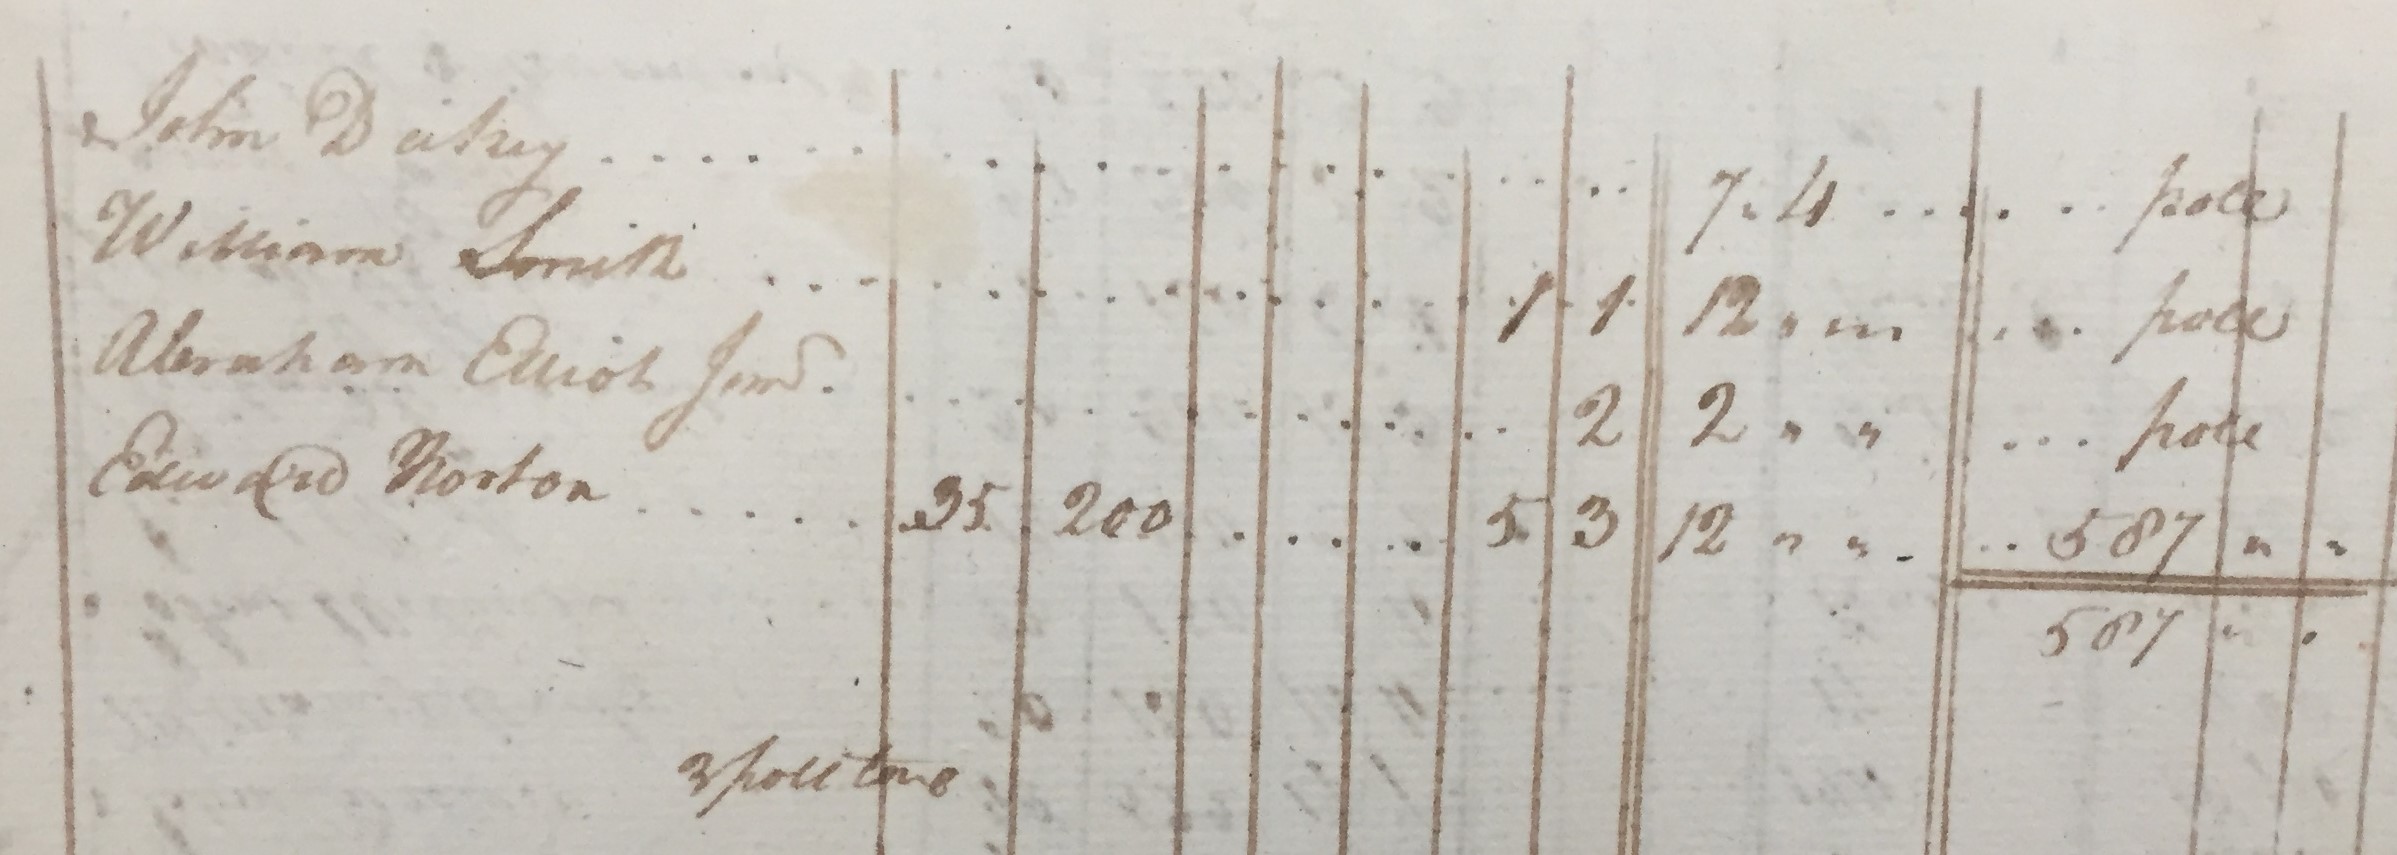 John Dickey . . . . . . . . . . . . . . . . . . 7 " 4 . . . . . . pole
William Smith . . . . . . . . . . . . 1 1 12 " " " . . . pole
Abraham Elliot Junr. . . . . . . . . . . . 2 2 " " . . . pole
Edward Norton . . . . . . 35 200 . . . . . 5 3 12 " " - . . 587 " "
587 " "
3 poll